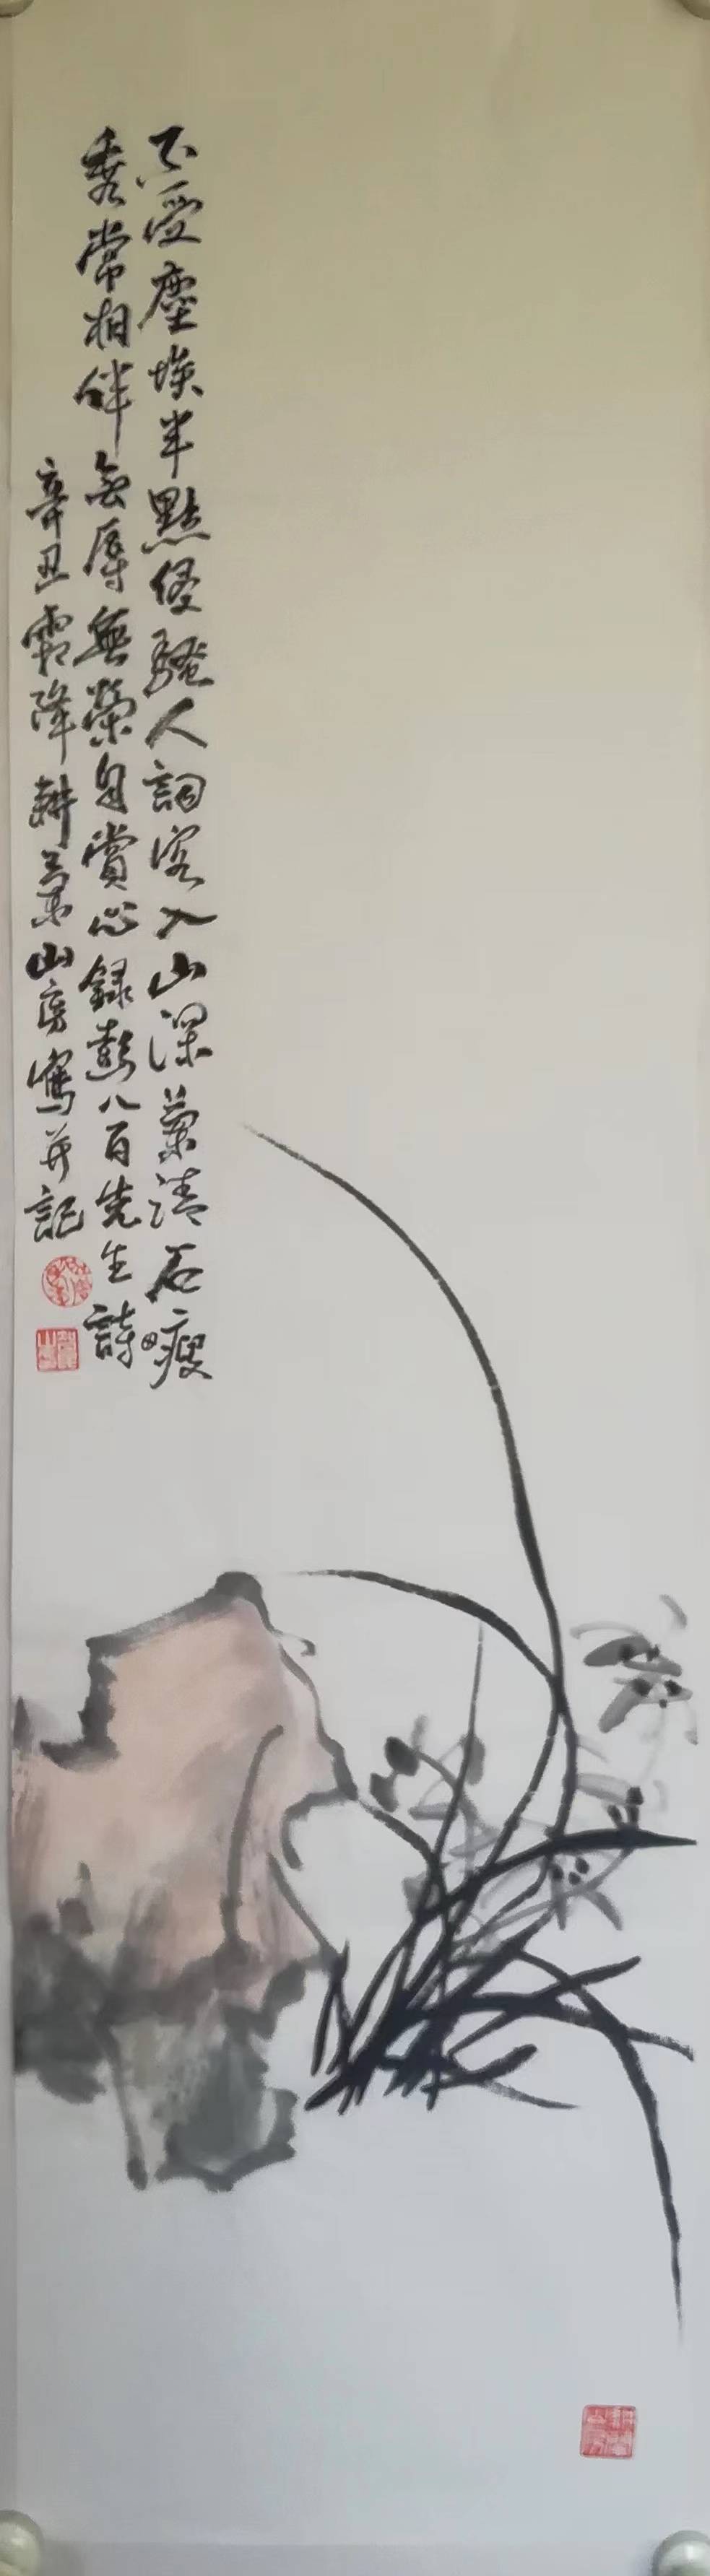 不受塵埃半點侵騷人詞客入山深蘭清石瘦
香常相伴無辱無榮自賞心録彭八百先生詩
辛丑霜降耕蘭山房寫并記